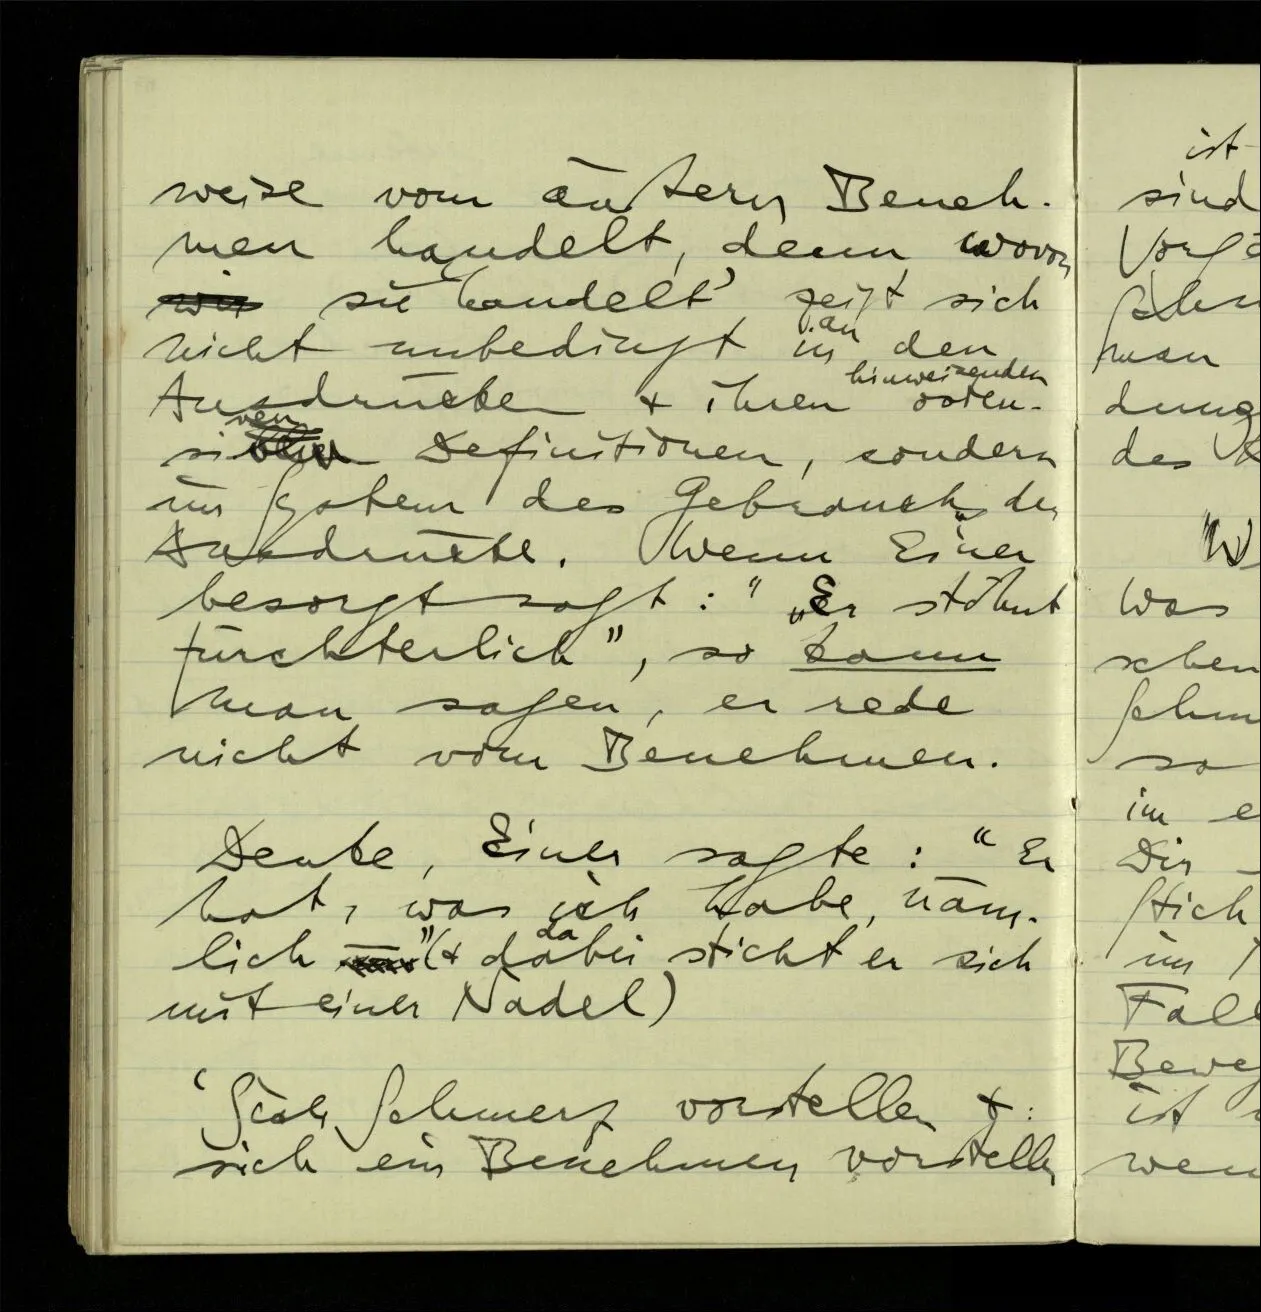 weise vom äußern Beneh-
men handelt, denn wovon
wir sie 'handelt', zeigt sich
nicht unbedingt in an den
Ausdrücken + ihren hinweisenden osten-
siblen ven Definitionen, sondern
im System des Gebrauchs der
Ausdrücke. Wenn Einer
besorgt sagt: " „Er stöhnt
fürchterlich", so kann
man sagen, er rede
nicht vom Benehmen.
Denke, Einer sagte: "Er
hat, was ich habe, näm-
lich " (+ dabei da sticht er sich
mit einer Nadel)
'Sich Schmerz vorstellen +:
sich ein Benehmen vorstellen
ist
sind
man
des
W
was
schen
so
im e
Dir
Stich
im
Fall
ist